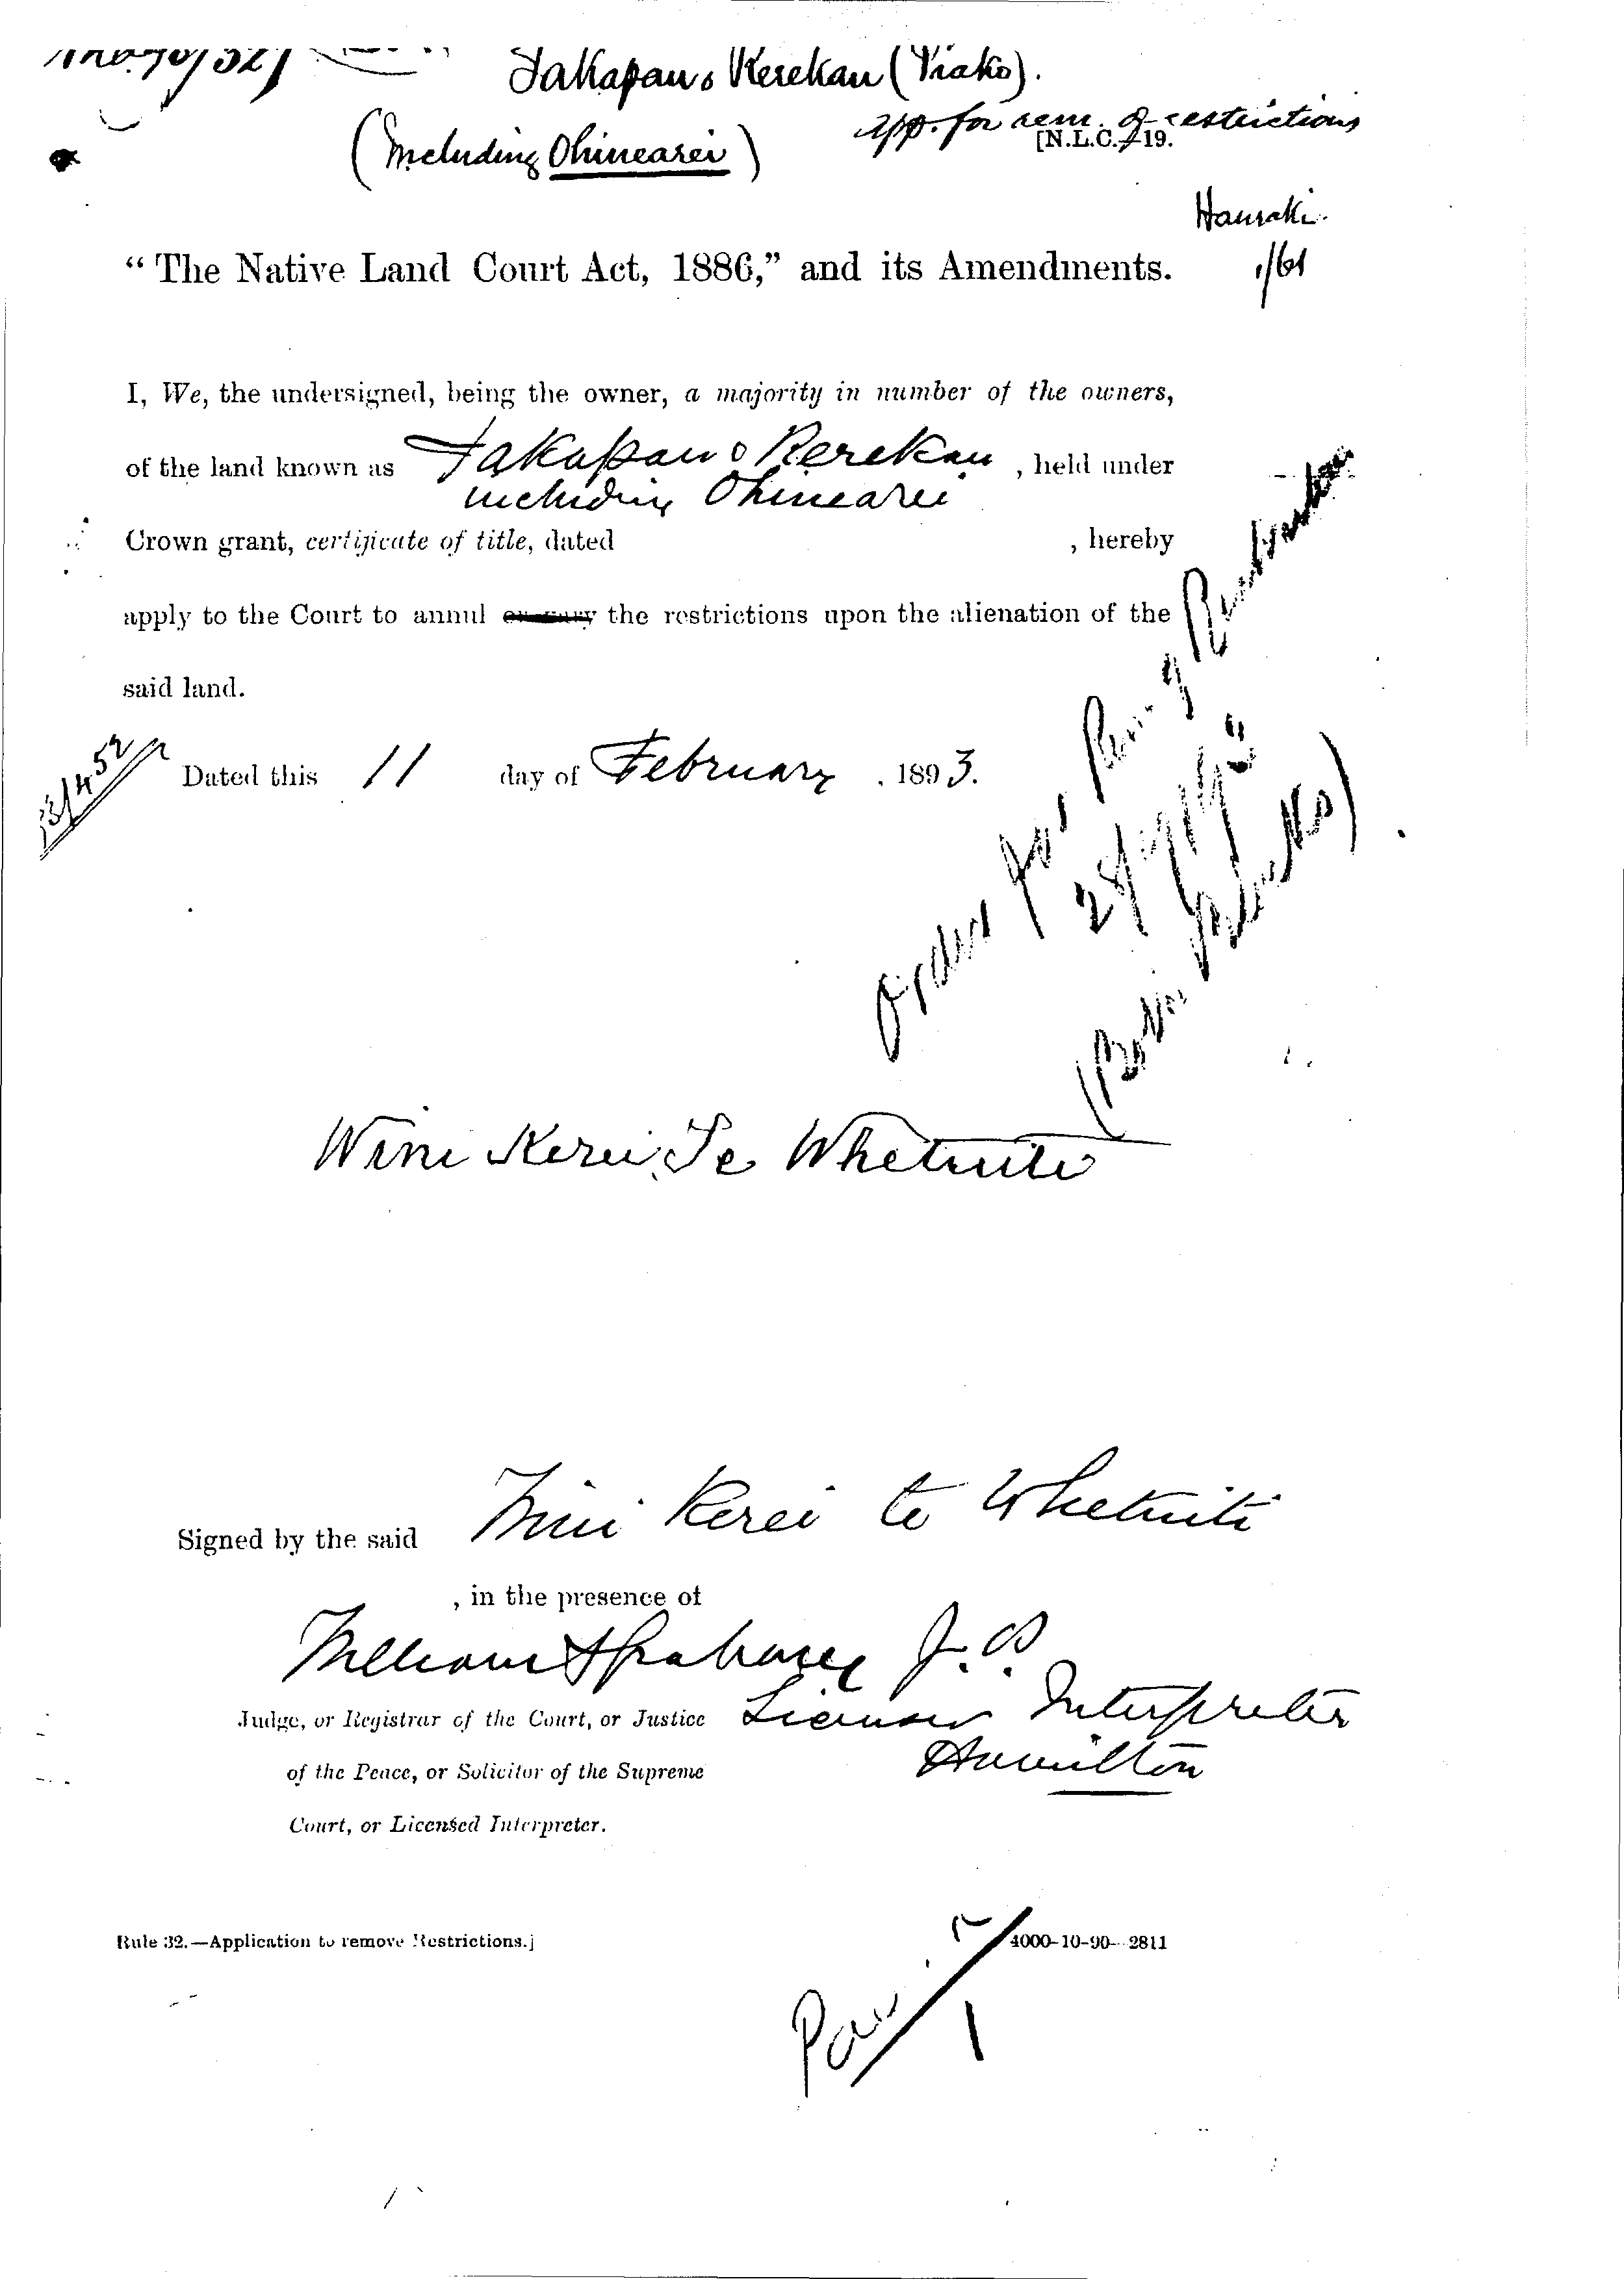 Takapau o Kerekau (Piako).
App. for rem. of restrictions
(Including Ohinearei)
[N.L.C.—19.
Hauraki.
1/61
“The Native Land Court Act, 1886,” and its Amendments.
I, We, the undersigned, being the owner, a majority in number of the owners,
of the land known as Takapau o Kerekau, held under
including Ohinearei
Crown grant, certificate of title, dated , hereby
apply to the Court to annul the restrictions upon the alienation of the
said land.
Dated this 11 day of February, 1893.
Wini Kerei Te Whetuiti
Signed by the said Wini Kerei te Whetuiti
, in the presence of
William J.P.
Judge, or Registrar of the Court, or Justice Licensed Interpreter
of the Peace, or Solicitor of the Supreme Hamilton
Court, or Licensed Interpreter.
Rule 32.—Application to remove Restrictions.]
4000-10-90—2811